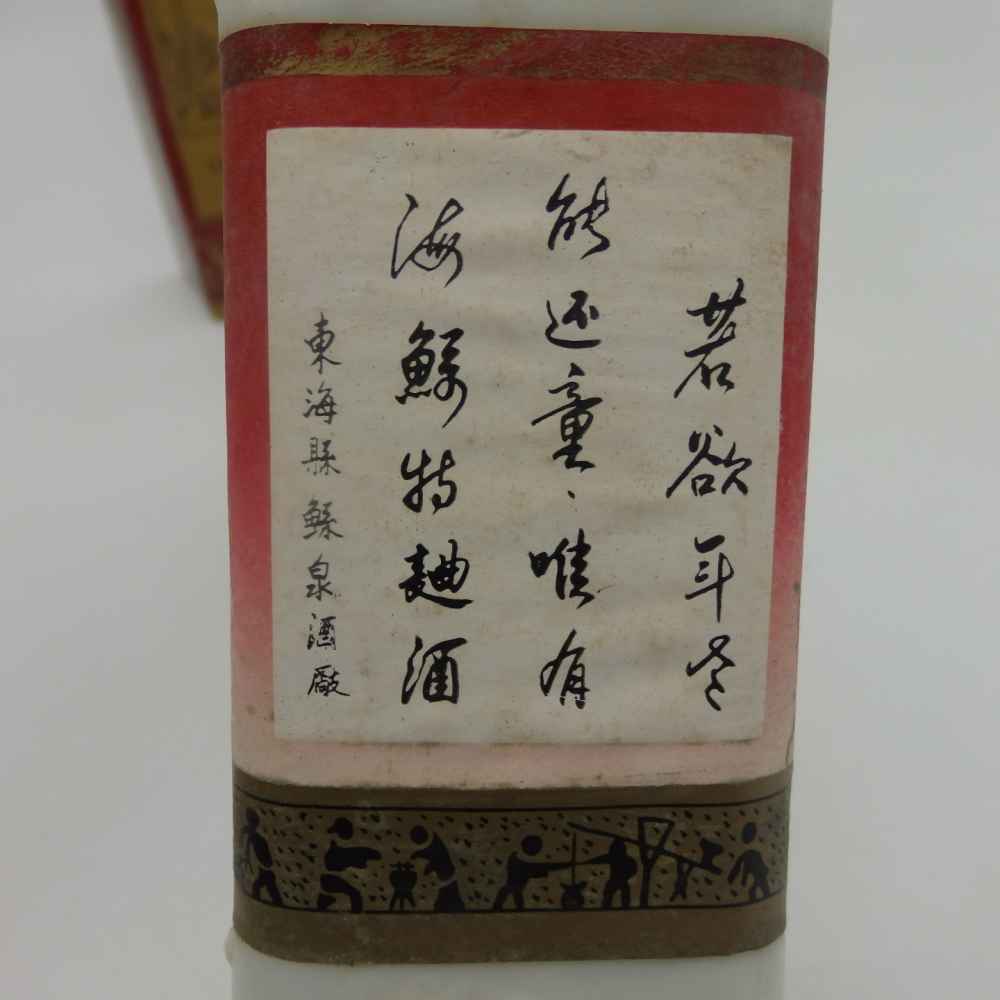 若欲年老
能还童、唯有
海鯀特麯酒
東海縣鯀泉酒廠